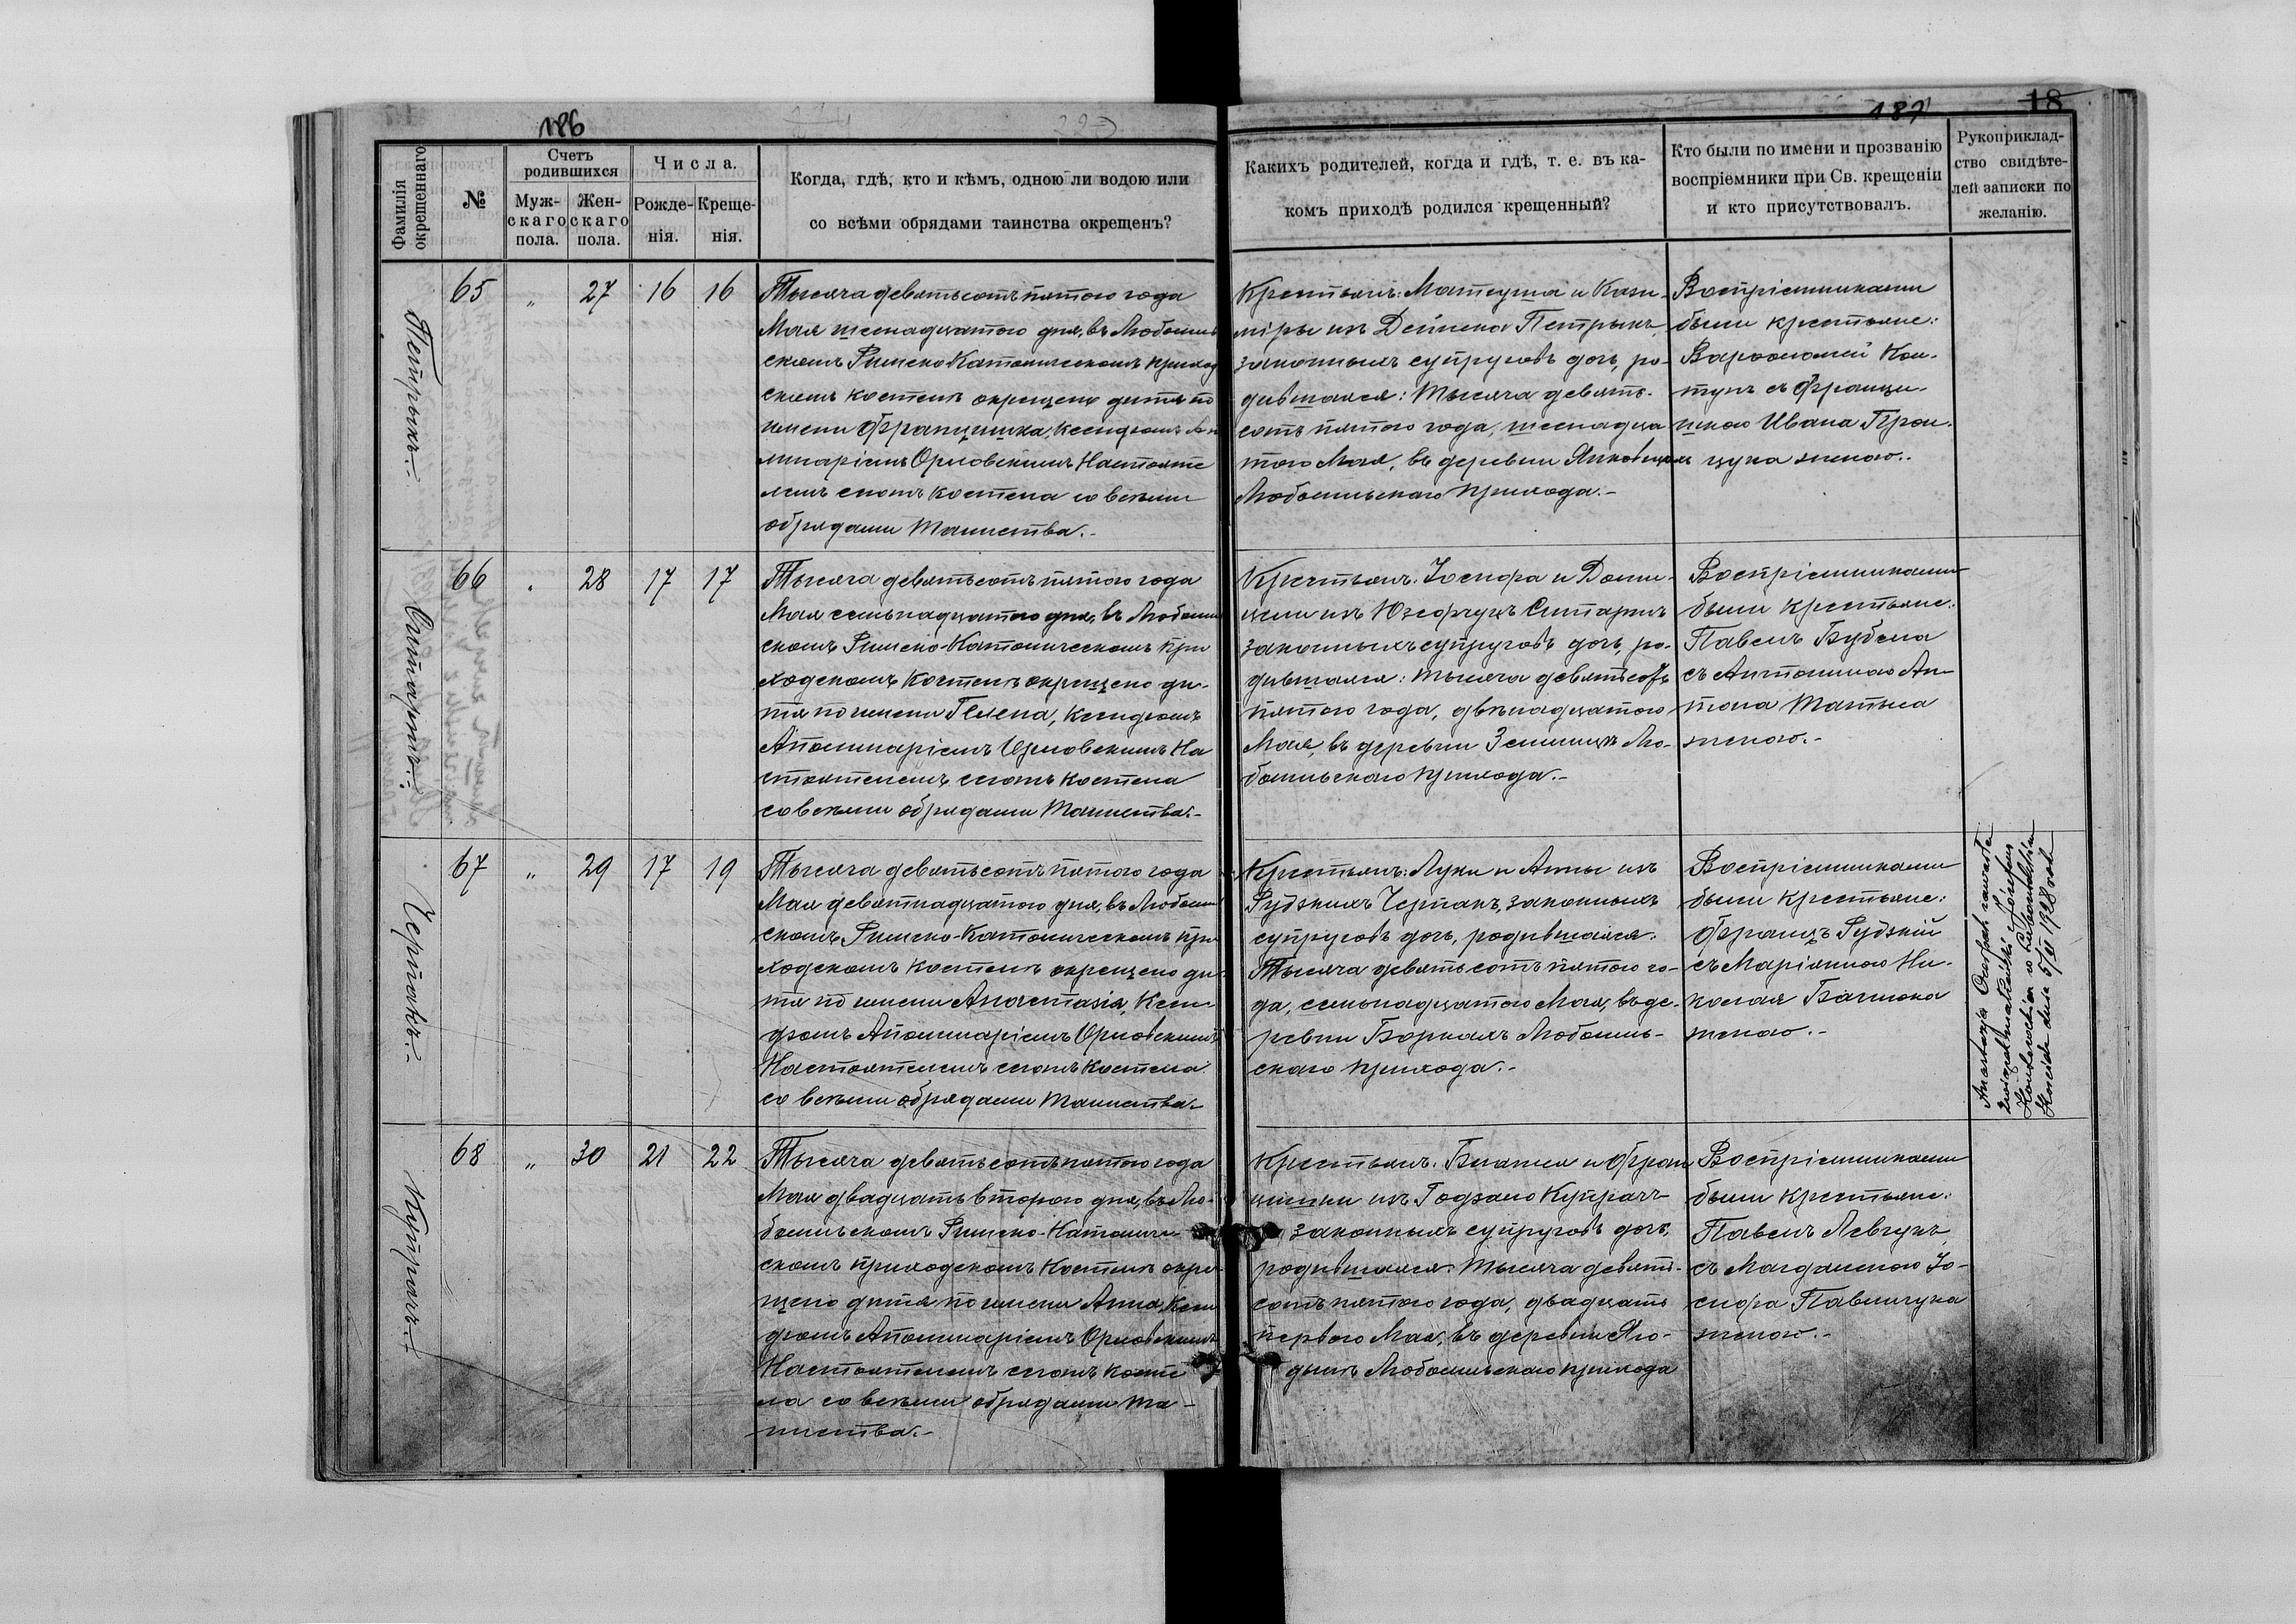 186
Фамилія окрещеннаго
№
Счетъ родившихся
Муж-скаго пола.
Жен-скаго пола.
Числа.
Рожде-нія.
Креще-нія.
Когда, гдѣ, кто и кѣмъ, одною ли водою или
со всѣми обрядами таинства окрещенъ?
187
18
Какихъ родителей, когда и гдѣ, т. е. въ ка-
комъ приходѣ родился крещенный?
Кто были по имени и прозванію
воспріемники при Св. крещеніи
и кто присутствовалъ.
Рукоприклад-
ство свидѣте-
лей записки по
желанію.
Петрыкъ.
65 " 27 16 16
Тысяча девятьсотъ пятого года
Мая шеснадцатого дня, въ Любомль
скомъ Римско Католическомъ приход
скомъ костелѣ окрещено дитя по
имени Францишка, ксендзомъ Апо
линаріемъ Орловскимъ Настояте
лемъ сногъ костела со всѣми
обрядами Таинства.-
Крестьянъ: Матеуша и Кази-
міры изъ Дейнека Петрыкъ,
законныхъ супруговъ дочь, ро-
дившаяся: Тысяча девять-
сотъ пятого года, шеснадца
того Мая, въ деревни Янковцахъ
Любомльскаго прихода.-
Воспріемниками
были крестьяне:
Варѳоломей Ков-
тунъ съ Франци-
шкою Ивана Прон-
цука женою.-
Ситарикъ.
66 " 28 17 17
Тысяча девятьсотъ пятого года
Мая семьнадцатого дня, въ Любомль
скомъ Римско-Католическомъ при
ходскомъ костелѣ окрещено ди-
тя по имени Гелена, ксендзомъ
Аполинаріемъ Орловскимъ На
стоятелемъ сногъ костела
со всѣми обрядами Таинства.-
Крестьянъ: Іосифа и Доми-
цели изъ Юзефчукъ Ситарикъ
законныхъ супруговъ дочь, ро-
дившаяся: Тысяча девятьсотъ
пятого года, двѣнадцатого
Мая, въ деревни Землицѣ Лю-
бомльскаго прихода.-
Воспріемниками
были крестьяне:
Павелъ Бубела
съ Антониною Ан-
тона Матыса
женою.-
Черпакъ.
67 " 29 17 19
Тысяча девятьсотъ пятого года
Мая девятнадцатого дня, въ Любомль
скомъ Римско-Католическомъ при
ходскомъ костелѣ окрещено ди-
тя по имени Анастазія, Ксен-
дзомъ Аполинаріемъ Орловскимъ
Настоятелемъ сногъ костела
со всѣми обрядами Таинства.-
Крестьянъ: Луки и Анны изъ
Рудзкихъ Черпакъ, законныхъ
супруговъ дочь, родившаяся:
Тысяча девятьсотъ пятого го-
да, семьнадцатого Мая, въ де-
ревни Боркахъ Любомль-
скаго прихода.-
Воспріемниками
были крестьяне:
Францъ Рудзкій
съ Маріянною Ни-
колая Бачнока
женою.-
Anastazja Czerpak zawarła
związek małżeński Józefem
w Luboml
dnia 5/II 1928 roku
Купрачъ.
68 " 30 21 22
Тысяча девятьсотъ пятого года
Мая двадцать второго дня, въ Лю-
бомльскомъ Римско-Католиче
скомъ приходскомъ Костелѣ окре-
щено дитя по имени Анна, Ксен
дзомъ Аполинаріемъ Орловскимъ
Настоятелемъ сногъ косте
ла со всѣми обрядами Та-
инства.-
Крестьянъ: Блажея и Фран
цишки изъ Годзаго Купрачъ
законныхъ супруговъ дочь,
родившаяся: Тысяча девять-
сотъ пятого года, двадцать
первого Мая, въ деревни Яго-
дынѣ Любомльскаго прихода
Воспріемниками
были крестьяне:
Павелъ Левчукъ
съ Магдаленою Іо-
сифа Павличука
женою.-